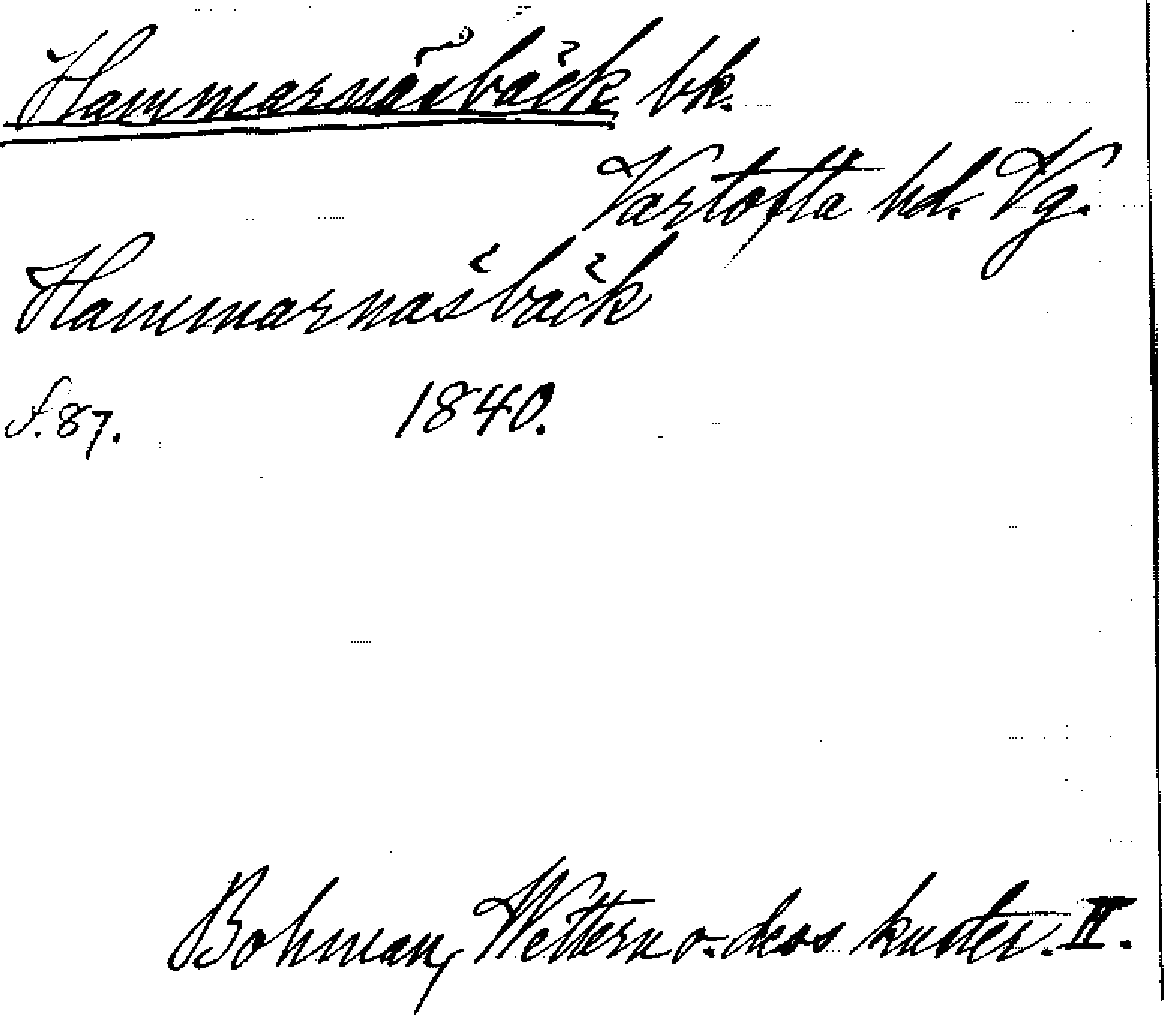 Hammarnäsbäck bk.
Vartofta hd. Vg.
Hammarnäsbäck
s. 87. 1840.
Bohman, Wettern o. dess kuster. II.